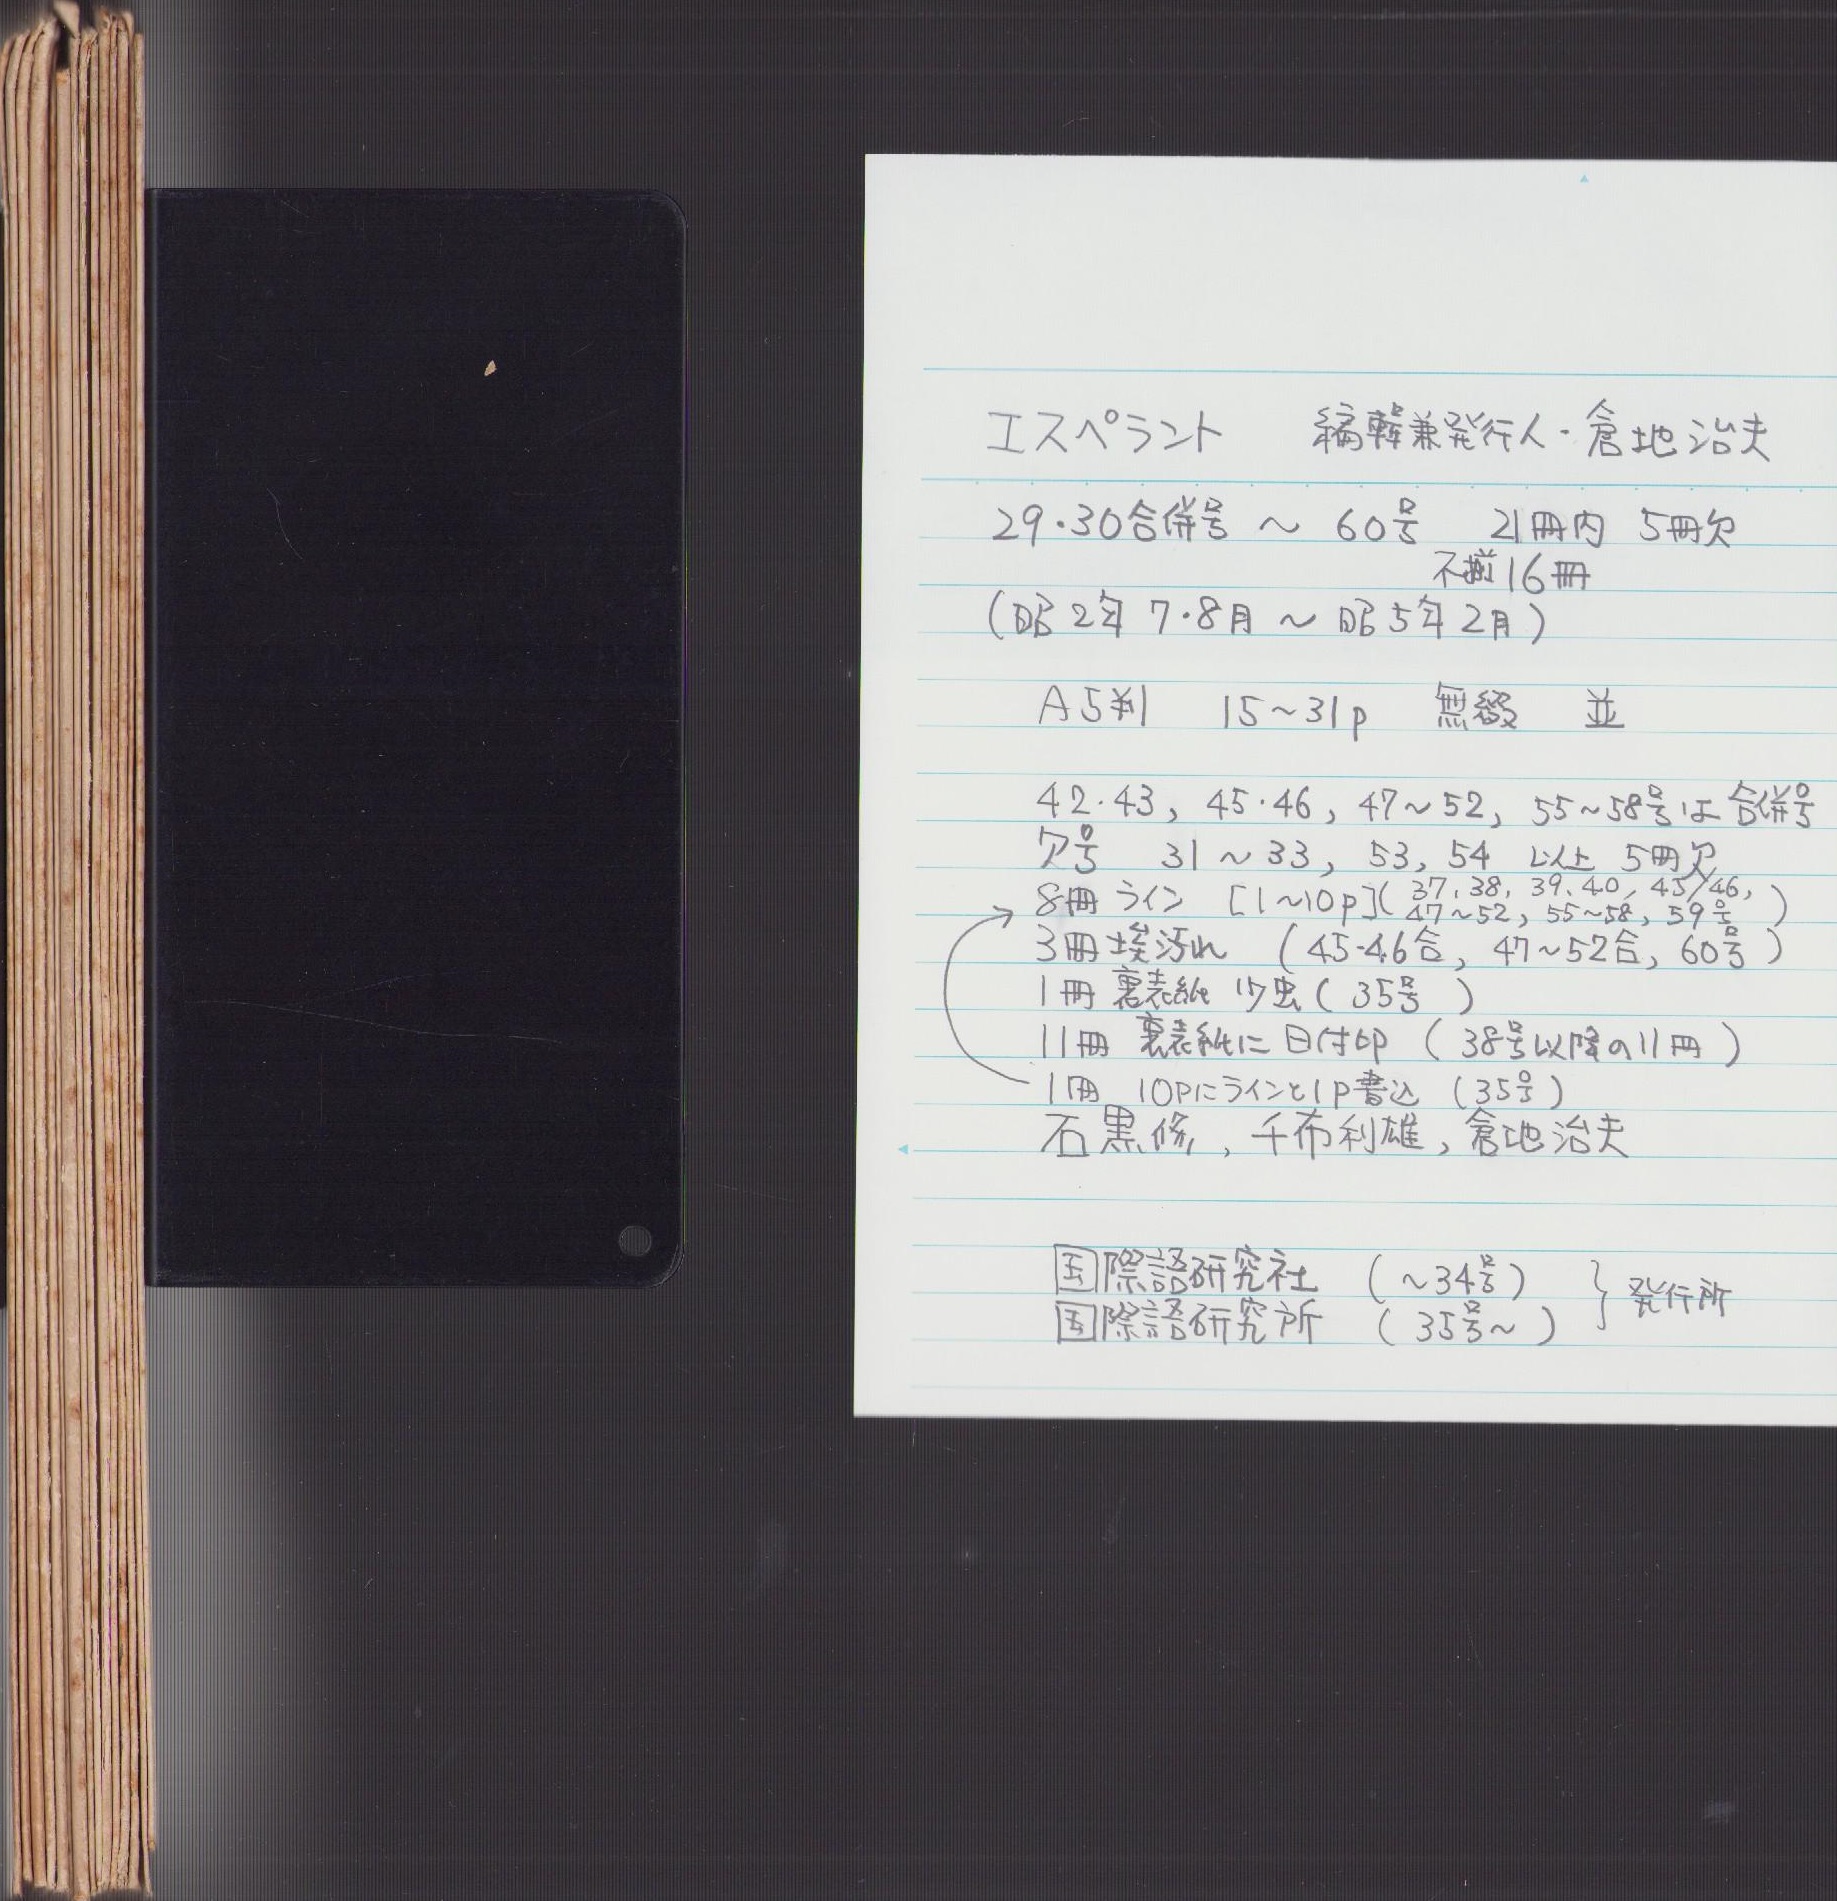 エスペラント 編輯兼発行人・倉地治夫
29・30合併号 ～ 60号 21冊内 5冊欠
不揃16冊
(昭2年 7・8月 ～ 昭5年2月)
A5判 15～31p 無綴 並
42・43, 45・46, 47～52, 55～58号は合併号
欠号 31～33, 53, 54 以上 5冊欠
8冊 ライン [1～10p](37, 38, 39, 40, 45/46,
47～52, 55～58, 59号)
3冊埃汚れ (45-46合, 47～52合, 60号)
1冊 裏表紙 少虫(35号)
11冊 裏表紙に日付印 (38号以降の11冊)
1冊 10Pにラインと1p書込 (35号)
石黒修, 千布利雄, 倉地治夫
国際語研究社 (～34号)
国際語研究所 (35号～)
発行所